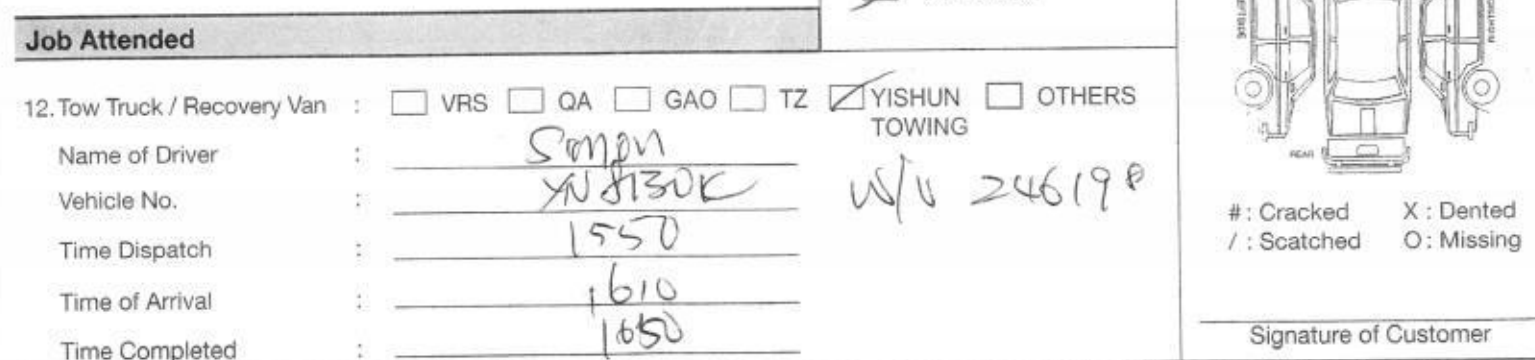 Job Attended
12. Tow Truck / Recovery Van : VRS QA GAO TZ YISHUN TOWING OTHERS
Name of Driver : Simon
Vehicle No. : YN8130K W/U 246198
Time Dispatch : 1550
Time of Arrival : 1610
Time Completed : 1650
REAR
# : Cracked X : Dented
/ : Scatched O : Missing
Signature of Customer